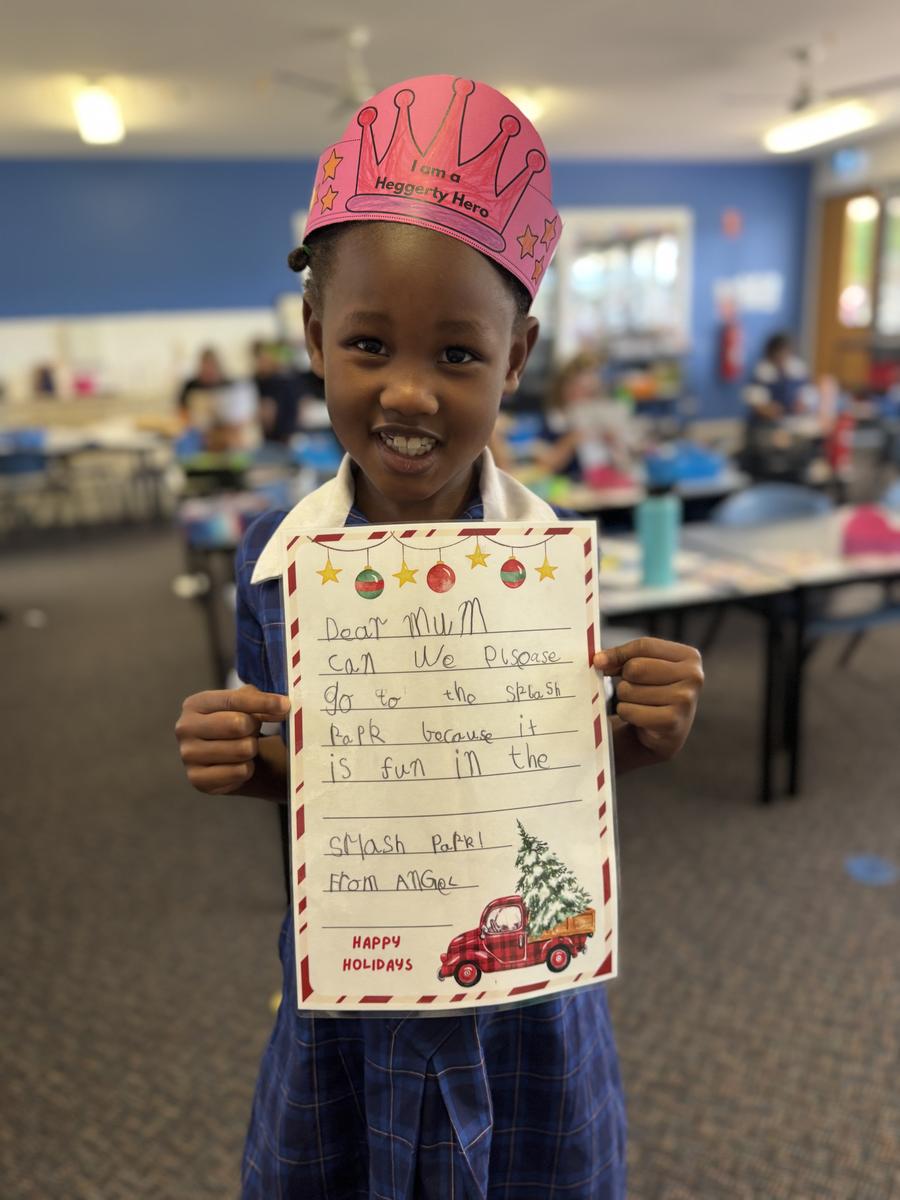 I am a
Heggerty Hero
Dear MuM
can We plsoase
go to the splash
paPk because it
is fun in the
sMash paPk!
From ANGeL
HAPPY
HOLIDAYS